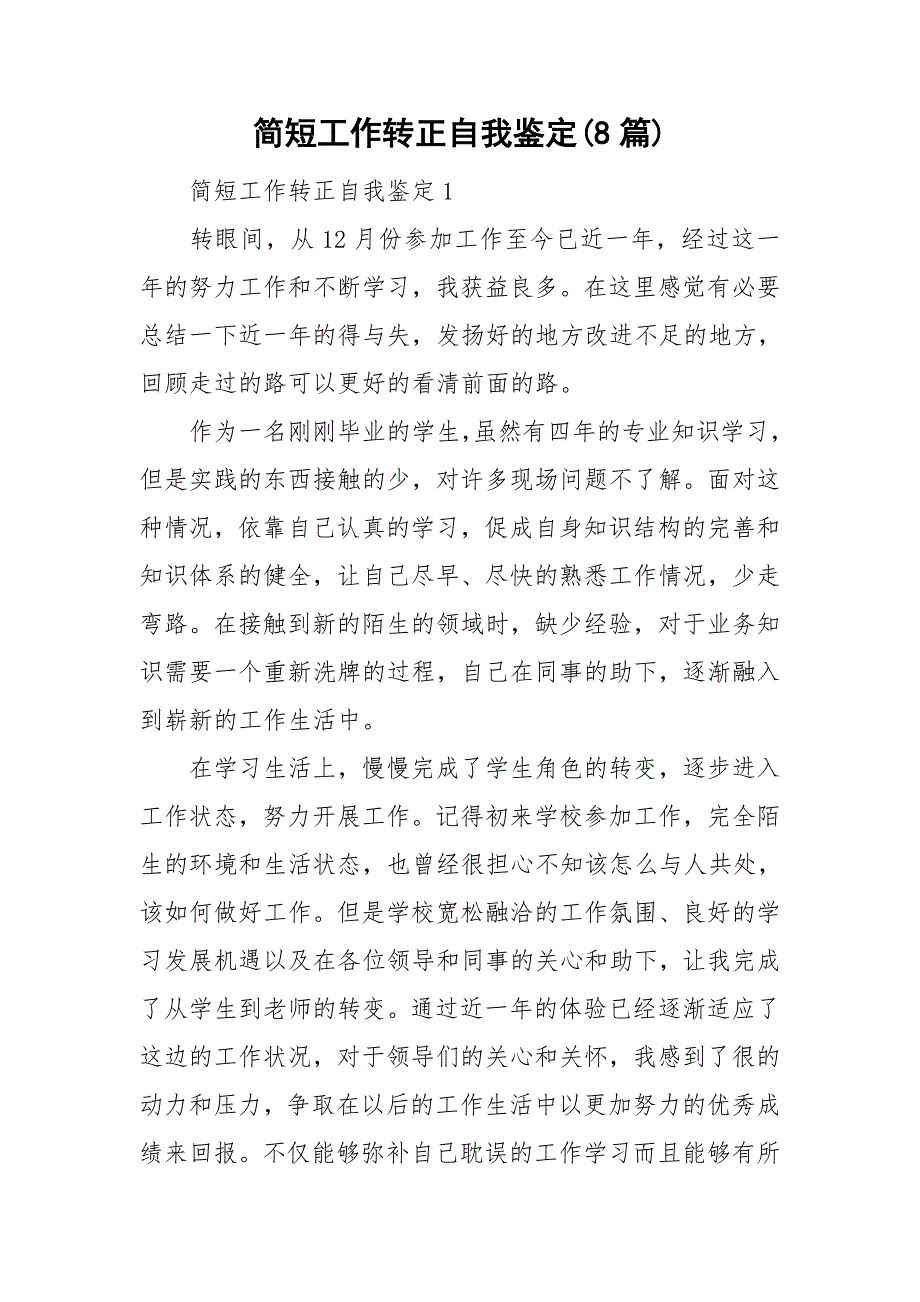 简短工作转正自我鉴定(8篇)
简短工作转正自我鉴定1
转眼间，从12月份参加工作至今已近一年，经过这一
年的努力工作和不断学习，我获益良多。在这里感觉有必要
总结一下近一年的得与失，发扬好的地方改进不足的地方，
回顾走过的路可以更好的看清前面的路。
作为一名刚刚毕业的学生，虽然有四年的专业知识学习，
但是实践的东西接触的少，对许多现场问题不了解。面对这
种情况，依靠自己认真的学习，促成自身知识结构的完善和
知识体系的健全，让自己尽早、尽快的熟悉工作情况，少走
弯路。在接触到新的陌生的领域时，缺少经验，对于业务知
识需要一个重新洗牌的过程，自己在同事的助下，逐渐融入
到崭新的工作生活中。
在学习生活上，慢慢完成了学生角色的转变，逐步进入
工作状态，努力开展工作。记得初来学校参加工作，完全陌
生的环境和生活状态，也曾经很担心不知该怎么与人共处，
该如何做好工作。但是学校宽松融洽的工作氛围、良好的学
习发展机遇以及在各位领导和同事的关心和助下，让我完成
了从学生到老师的转变。通过近一年的体验已经逐渐适应了
这边的工作状况，对于领导们的关心和关怀，我感到了很的
动力和压力，争取在以后的工作生活中以更加努力的优秀成
绩来回报。不仅能够弥补自己耽误的工作学习而且能够有所